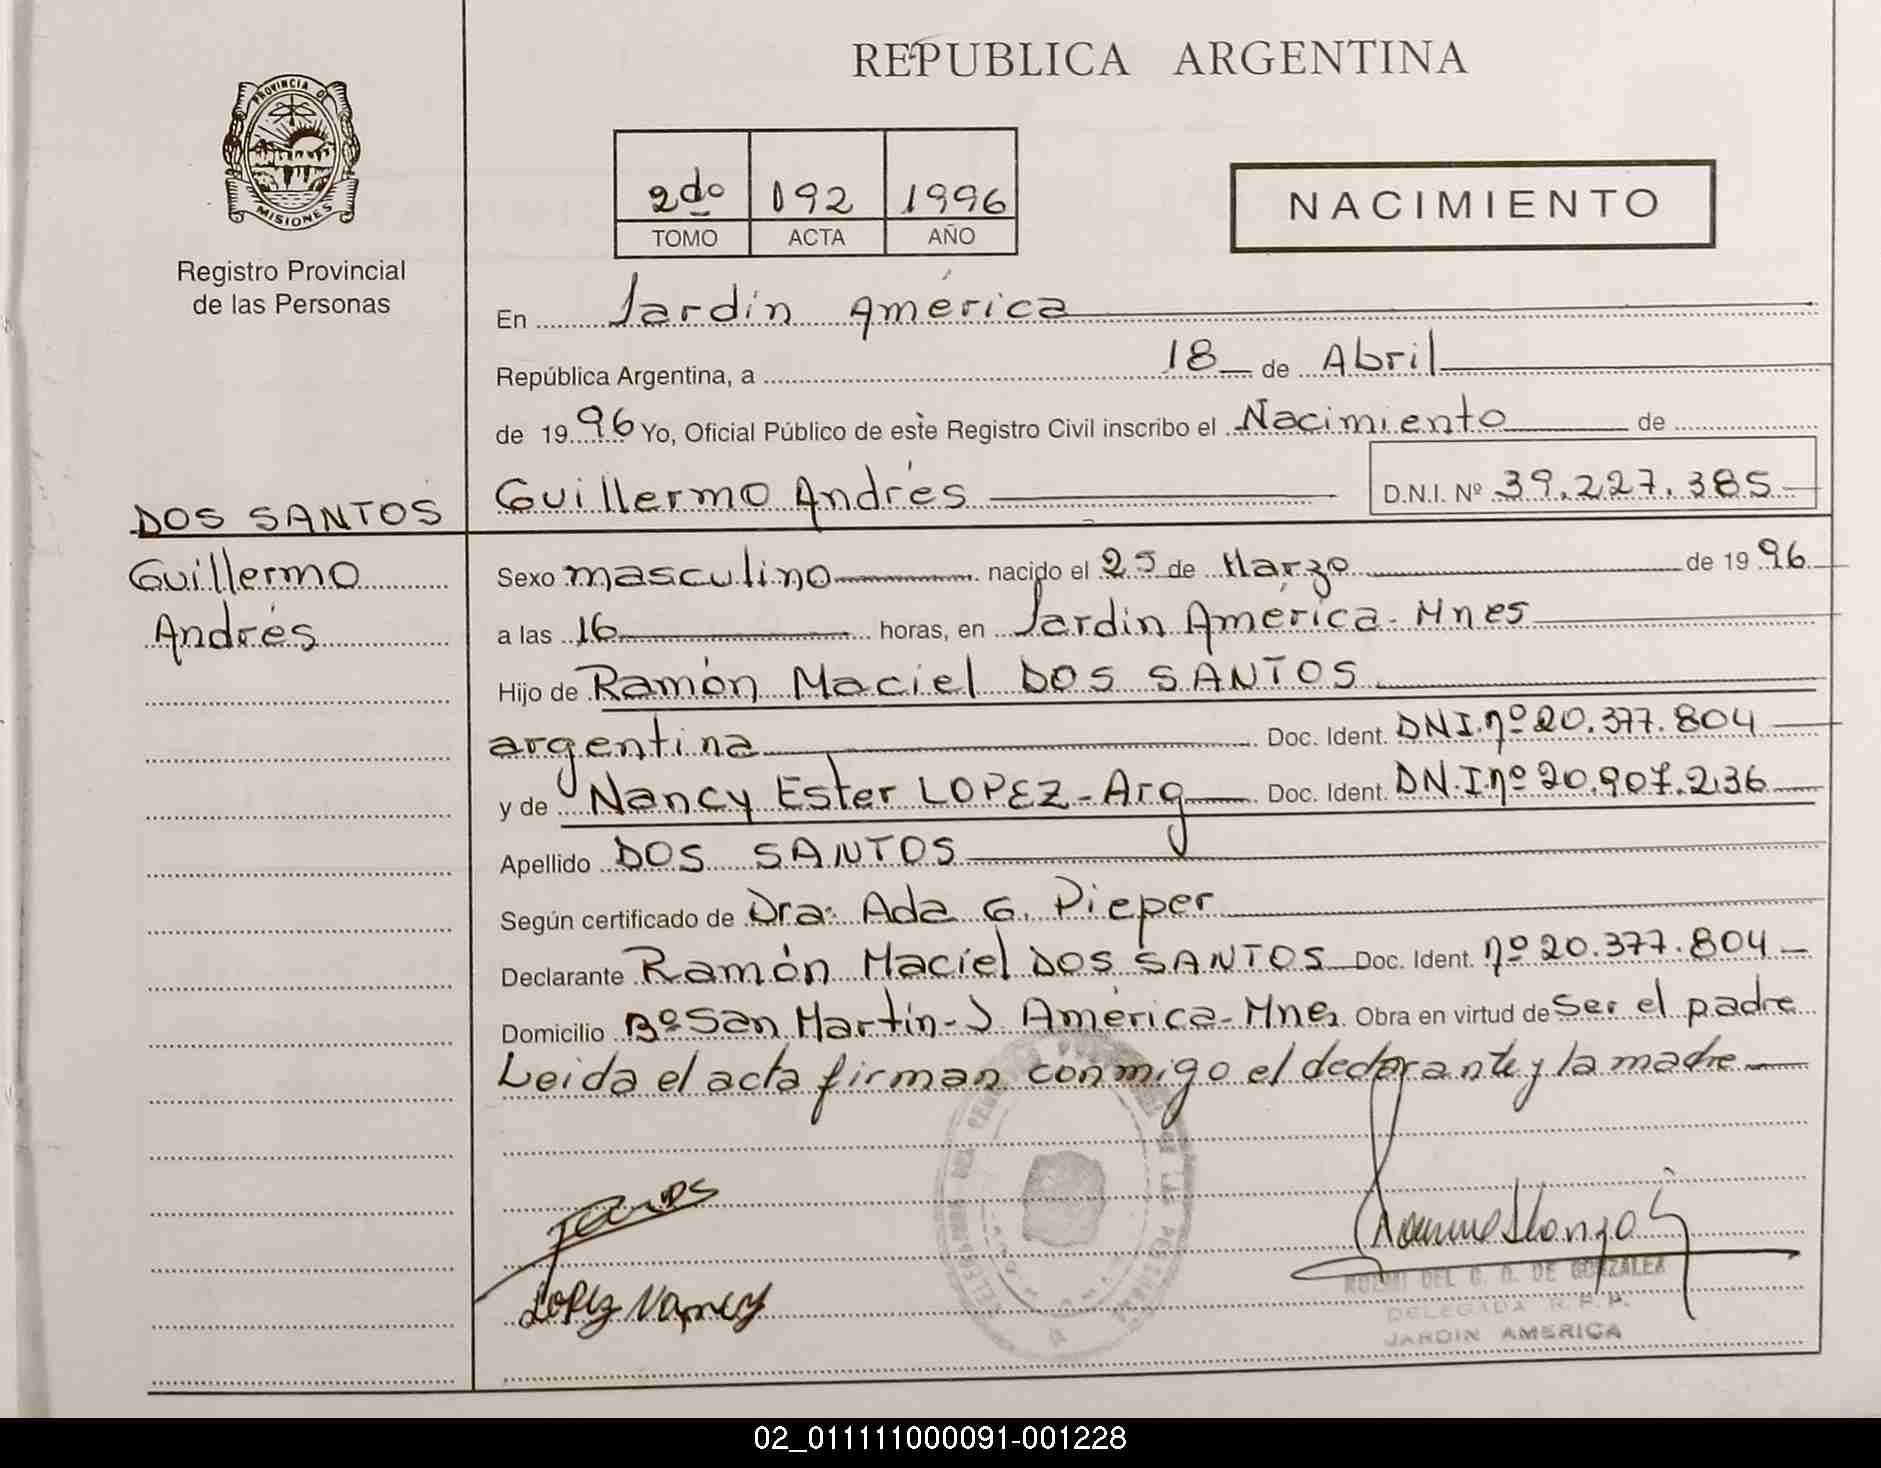 REPUBLICA ARGENTINA
PROVINCIA D
MISIONES
Registro Provincial
de las Personas
2do 092 1996
TOMO ACTA AÑO
NACIMIENTO
En Jardín América
República Argentina, a 18 de Abril
de 1996 Yo, Oficial Público de este Registro Civil inscribo el Nacimiento de
Guillermo Andrés D.N.I. Nº 39.227.385
DOS SANTOS
Guillermo
Andrés
Sexo masculino nacido el 25 de Marzo de 1996
a las 16 horas, en Jardín América - Mnes
Hijo de Ramón Maciel DOS SANTOS
argentina Doc. Ident. DNI.nº 20.377.804
y de Nancy Ester LOPEZ - Arg Doc. Ident. DN.I.nº 20.907.236
Apellido DOS SANTOS
Según certificado de Dra. Ada G. Pieper
Declarante Ramón Maciel DOS SANTOS Doc. Ident. nº 20.377.804
Domicilio Bº San Martín - J. América - Mnes Obra en virtud de Ser el padre
Leida el acta firman conmigo el declarante y la madre
Lopez Nancy
DEL C. D. DE GONZALEZ
DELEGADA R.P.P.
JARDIN AMERICA
02_011111000091-001228